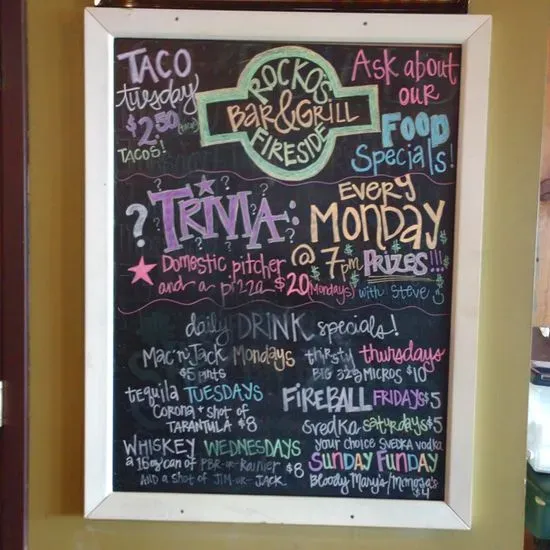 TACO
tuesday
$2.50 (each)
TACOS!
ROCKO'S
BAR & GRILL
FIRESIDE
ASK about
OUR
FOOD
Specials!
? TRIVIA:
EVERY
MONDAY
@ 7pm
PRIZES!!!
with Steve
Domestic pitcher
and a pizza $20 (Mondays)
daily DRINK specials!
MAC'n'JACK MONDAYS
$5 pints
tequila TUESDAYS
CORONA + SHOT OF
TARANTULA $8
WHISKEY WEDNESDAYS
a 16oz can of PBR-or-Rainier $8
AND A SHOT OF JIM-or-JACK
thirsty thursdays
BIG 32oz MICROS $10
FIREBALL FRIDAYS $5
svedka saturdays $5
your choice SVEDKA vodka
SUNDAY FUNDAY
Bloody Mary's/Mimosa's
$4